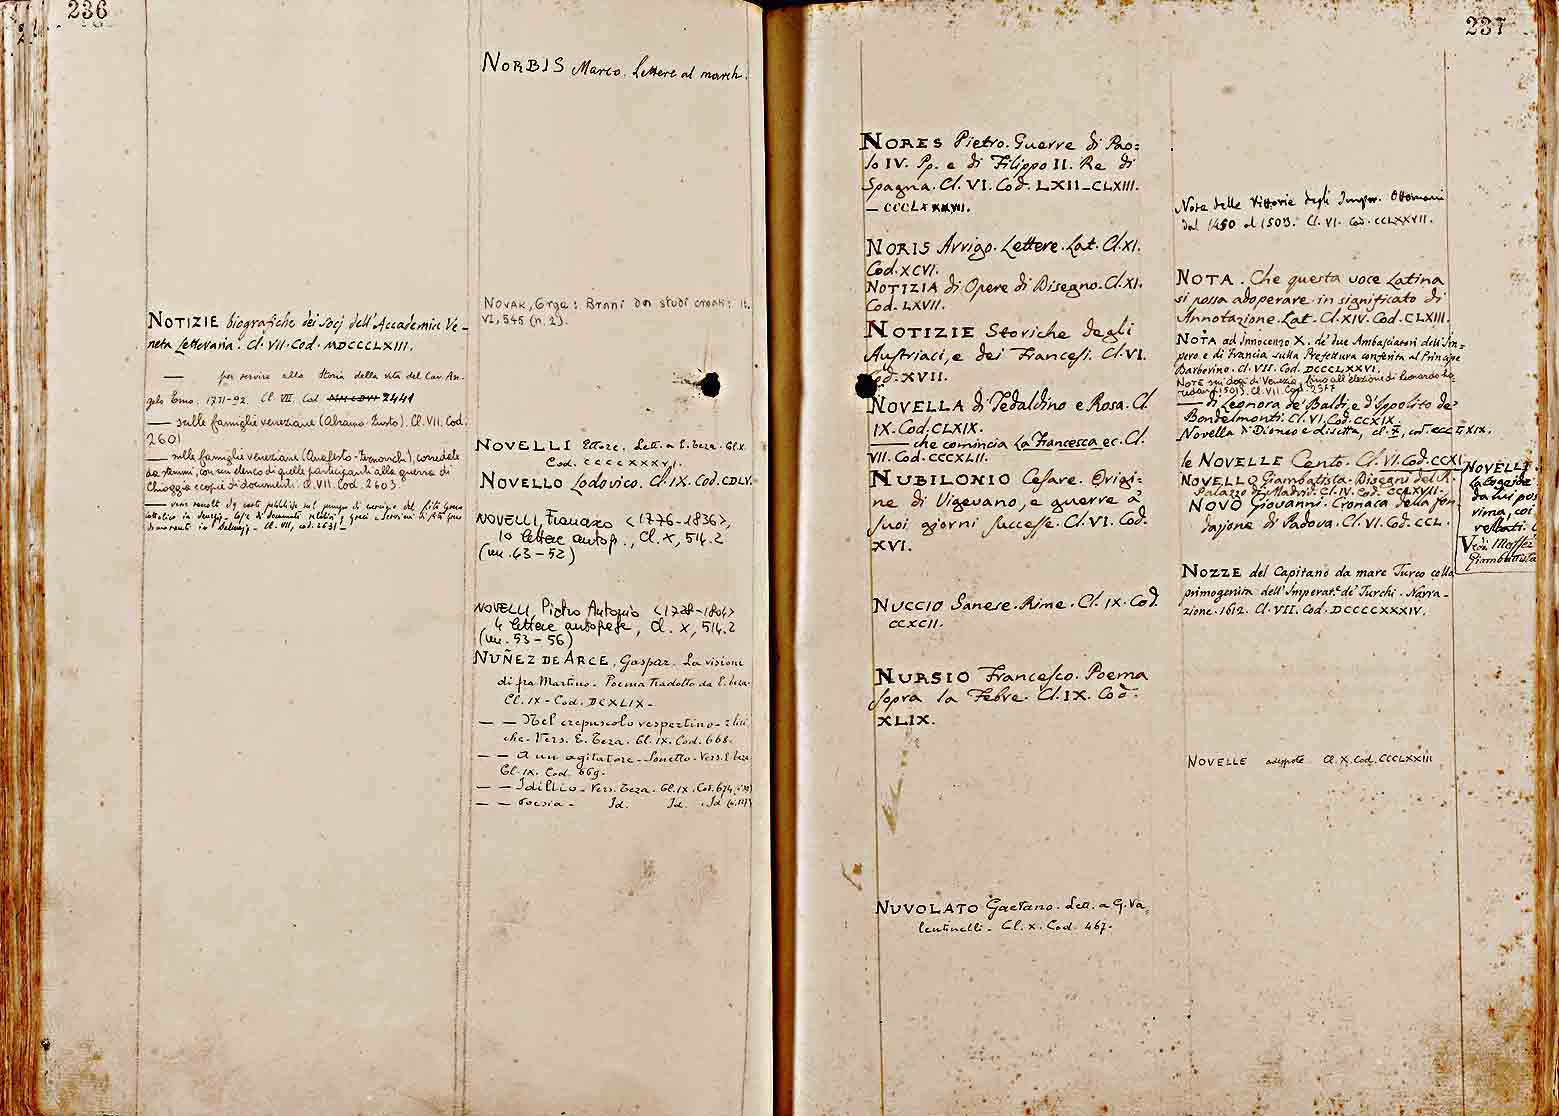 236
NOTIZIE biografiche dei Socj dell'Accademia Ve-
neta Letteraria. Cl. VII. Cod. MDCCCLXIII.
— per servire alla Storia della vita del Cav. An-
gelo Emo. 1731-92. Cl. VII. Cod. 2441
— sulle famiglie veneziane (Abramo-Zusto). Cl. VII. Cod.
2601
— sulle famiglie veneziane (Anafesto- ), corredate
da stemmi, con un elenco di quelle partecipanti alla guerra di
Chioggia e copie di documenti. Cl. VII. Cod. 2603.
Cl. VII, cod. 2631
NORBIS Marco. Lettere al march.
NOVAK, Grga: Brani don studi croati: It.
VI, 545 (n. 2).
NOVELLI Ettore. Lett. a E. Teza. Cl. X.
Cod. CCCCXXXVI.
NOVELLO Lodovico. Cl. IX. Cod. CDLV.
NOVELLI, Francesco <1776-1836>,
10 lettere autogr., Cl. X, 514.2
(nn. 43-52)
NOVELLI, Pietro Antonio <1728-1804>
4 lettere autografe, Cl. X, 514.2
(nn. 53-56)
NUÑEZ DE ARCE, Gaspar. La visione
di fra Martino. Poema tradotto da E. Teza.
Cl. IX. Cod. DCXLIX.
— — Nel crepuscolo vespertino - 
che. Vers. E. Teza. Cl. IX. Cod. 668.
— — A un agitatore - Sonetto. Vers. E. Teza
Cl. IX. Cod. 669.
— — Idillio. Vers. Teza. Cl. IX. Cod. 674
— — Poesia - Id. Id. Id
237
NORES Pietro. Guerre di Pao=
lo IV. Pp. e di Filippo II. Re di
Spagna. Cl. VI. Cod. LXII_CLXIII.
_ CCCLXXXVII.
NORIS Arrigo. Lettere. Lat. Cl. XI.
Cod. XCVI.
NOTIZIA di Opere di Disegno. Cl. XI.
Cod. LXVII.
NOTIZIE Storiche degli
Austriaci, e dei Francesi. Cl. VI.
Cod. XVII.
NOVELLA di Tedaldino e Rosa. Cl.
IX. Cod. CLXIX.
— che comincia La Francesca ec. Cl.
VII. Cod. CCCXLII.
NUBILONIO Cesare. Origi=
ne di Vigevano, e guerre a'
suoi giorni successe. Cl. VI. Cod.
XVI.
NUCCIO Sanese. Rime. Cl. IX. Cod.
CCXCII.
NURSIO Francesco. Poema
sopra la Febre. Cl. IX. Cod.
XLIX.
NUVOLATO Gaetano. Lett. a G. Va=
lentinelli. Cl. X. Cod. 467.
Note delle Vittorie degli Imper. Ottomani
dal 1450 al 1503. Cl. VI. Cod. CCLXXVII.
NOTA. Che questa voce Latina
si possa adoperare in significato di
Annotazione. Lat. Cl. XIV. Cod. CLXIII.
NOTA ad Innocenzo X. de' due Ambasciatori dell'Im=
pero e di Francia sulla Prefettura conferita al Principe
Barberino. Cl. VII. Cod. DCCCCLXXVI.
NOTE sui dogi di Venezia, fino all'elezione di Leonardo Lo
redan (1501). Cl. VII. Cod. 2367
— di Leonora de' Baldi, e d'Ippolito de'
Bondelmonti. Cl. VI. Cod. CCXIX.
Novella di Dioneo e Lisetta,
le NOVELLE Cento. Cl. VI. Cod. CCXI
NOVELLO Giambatista. Disegni del R.
Palazzo di Madrid. Cl. IV. Cod. CCCLXVII.
NOVO Giovanni. Cronaca della fon=
dazione di Padova. Cl. VI. Cod. CCL.
NOVELLI
da lui pos
rima, coi
Vedi Maffei
Giambattista
NOZZE del Capitano da mare Turco colla
primogenita dell'Imperat.e de' Turchi. Narra=
zione. 1612. Cl. VII. Cod. DCCCCXXXIV.
NOVELLE Cl. X. Cod. CCCLXXIII